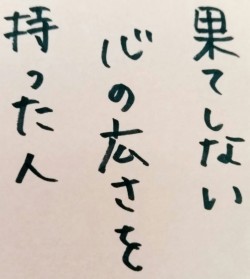 果てしない
心の広さを
持った人